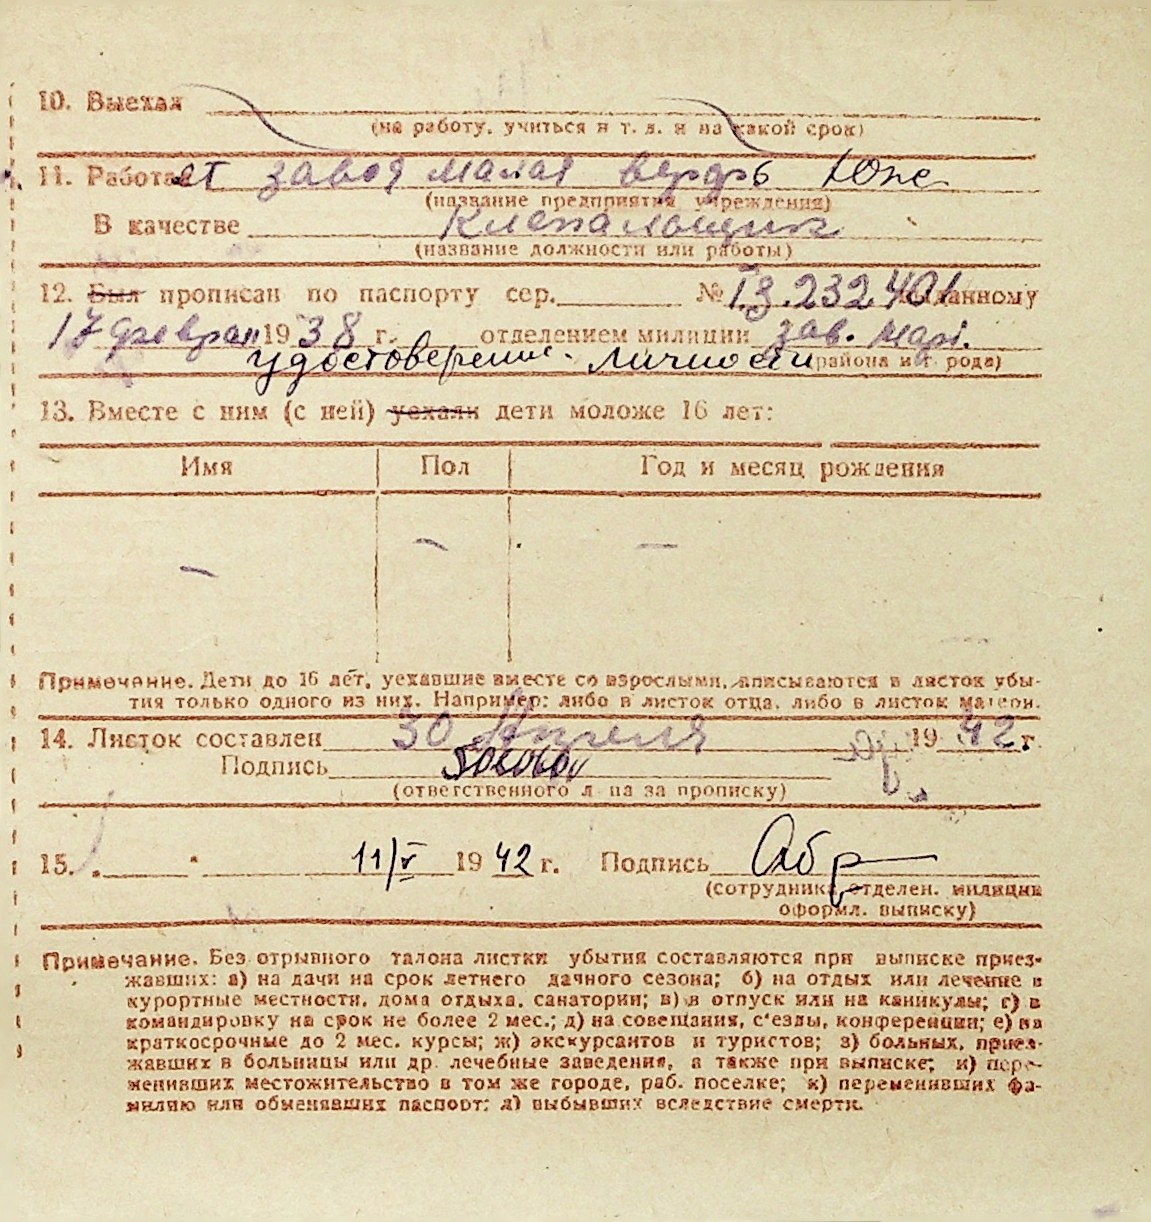 10. Выехал
(на работу, учиться и т. д. и на какой срок)
11. Работает завод малая верфь Юне
(название предприятия, учреждения)
В качестве Клепальщик
(название должности или работы)
12. Был прописан по паспорту сер. № 13.232401 выданному
17 феврал 1938 г. отделением милиции зав. Мар.
удостоверение личности района и города)
13. Вместе с ним (с ней) уехали дети моложе 16 лет:
Имя Пол Год и месяц рождения
— — —
Примечание. Дети до 16 лет, уехавшие вместе со взрослыми, вписываются в листок убы-
тия только одного из них. Например: либо в листок отца, либо в листок матери.
14. Листок составлен 30 Апреля 1942 г.
Подпись
(ответственного лица за прописку)
15. 11/V 1942 г. Подпись
(сотрудника отделен. милиции
оформл. выписку)
Примечание. Без отрывного талона листки убытия составляются при выписке приез-
жавших: а) на дачи на срок летнего дачного сезона; б) на отдых или лечение в
курортные местности, дома отдыха, санатории; в) в отпуск или на каникулы; г) в
командировку на срок не более 2 мес.; д) на совещания, с'езды, конференции; е) на
краткосрочные до 2 мес. курсы; ж) экскурсантов и туристов; з) больных, приез-
жавших в больницы или др. лечебные заведения, а также при выписке; и) пере-
менивших местожительство в том же городе, раб. поселке; к) переменивших фа-
милию или обменявших паспорт; л) выбывших вследствие смерти.